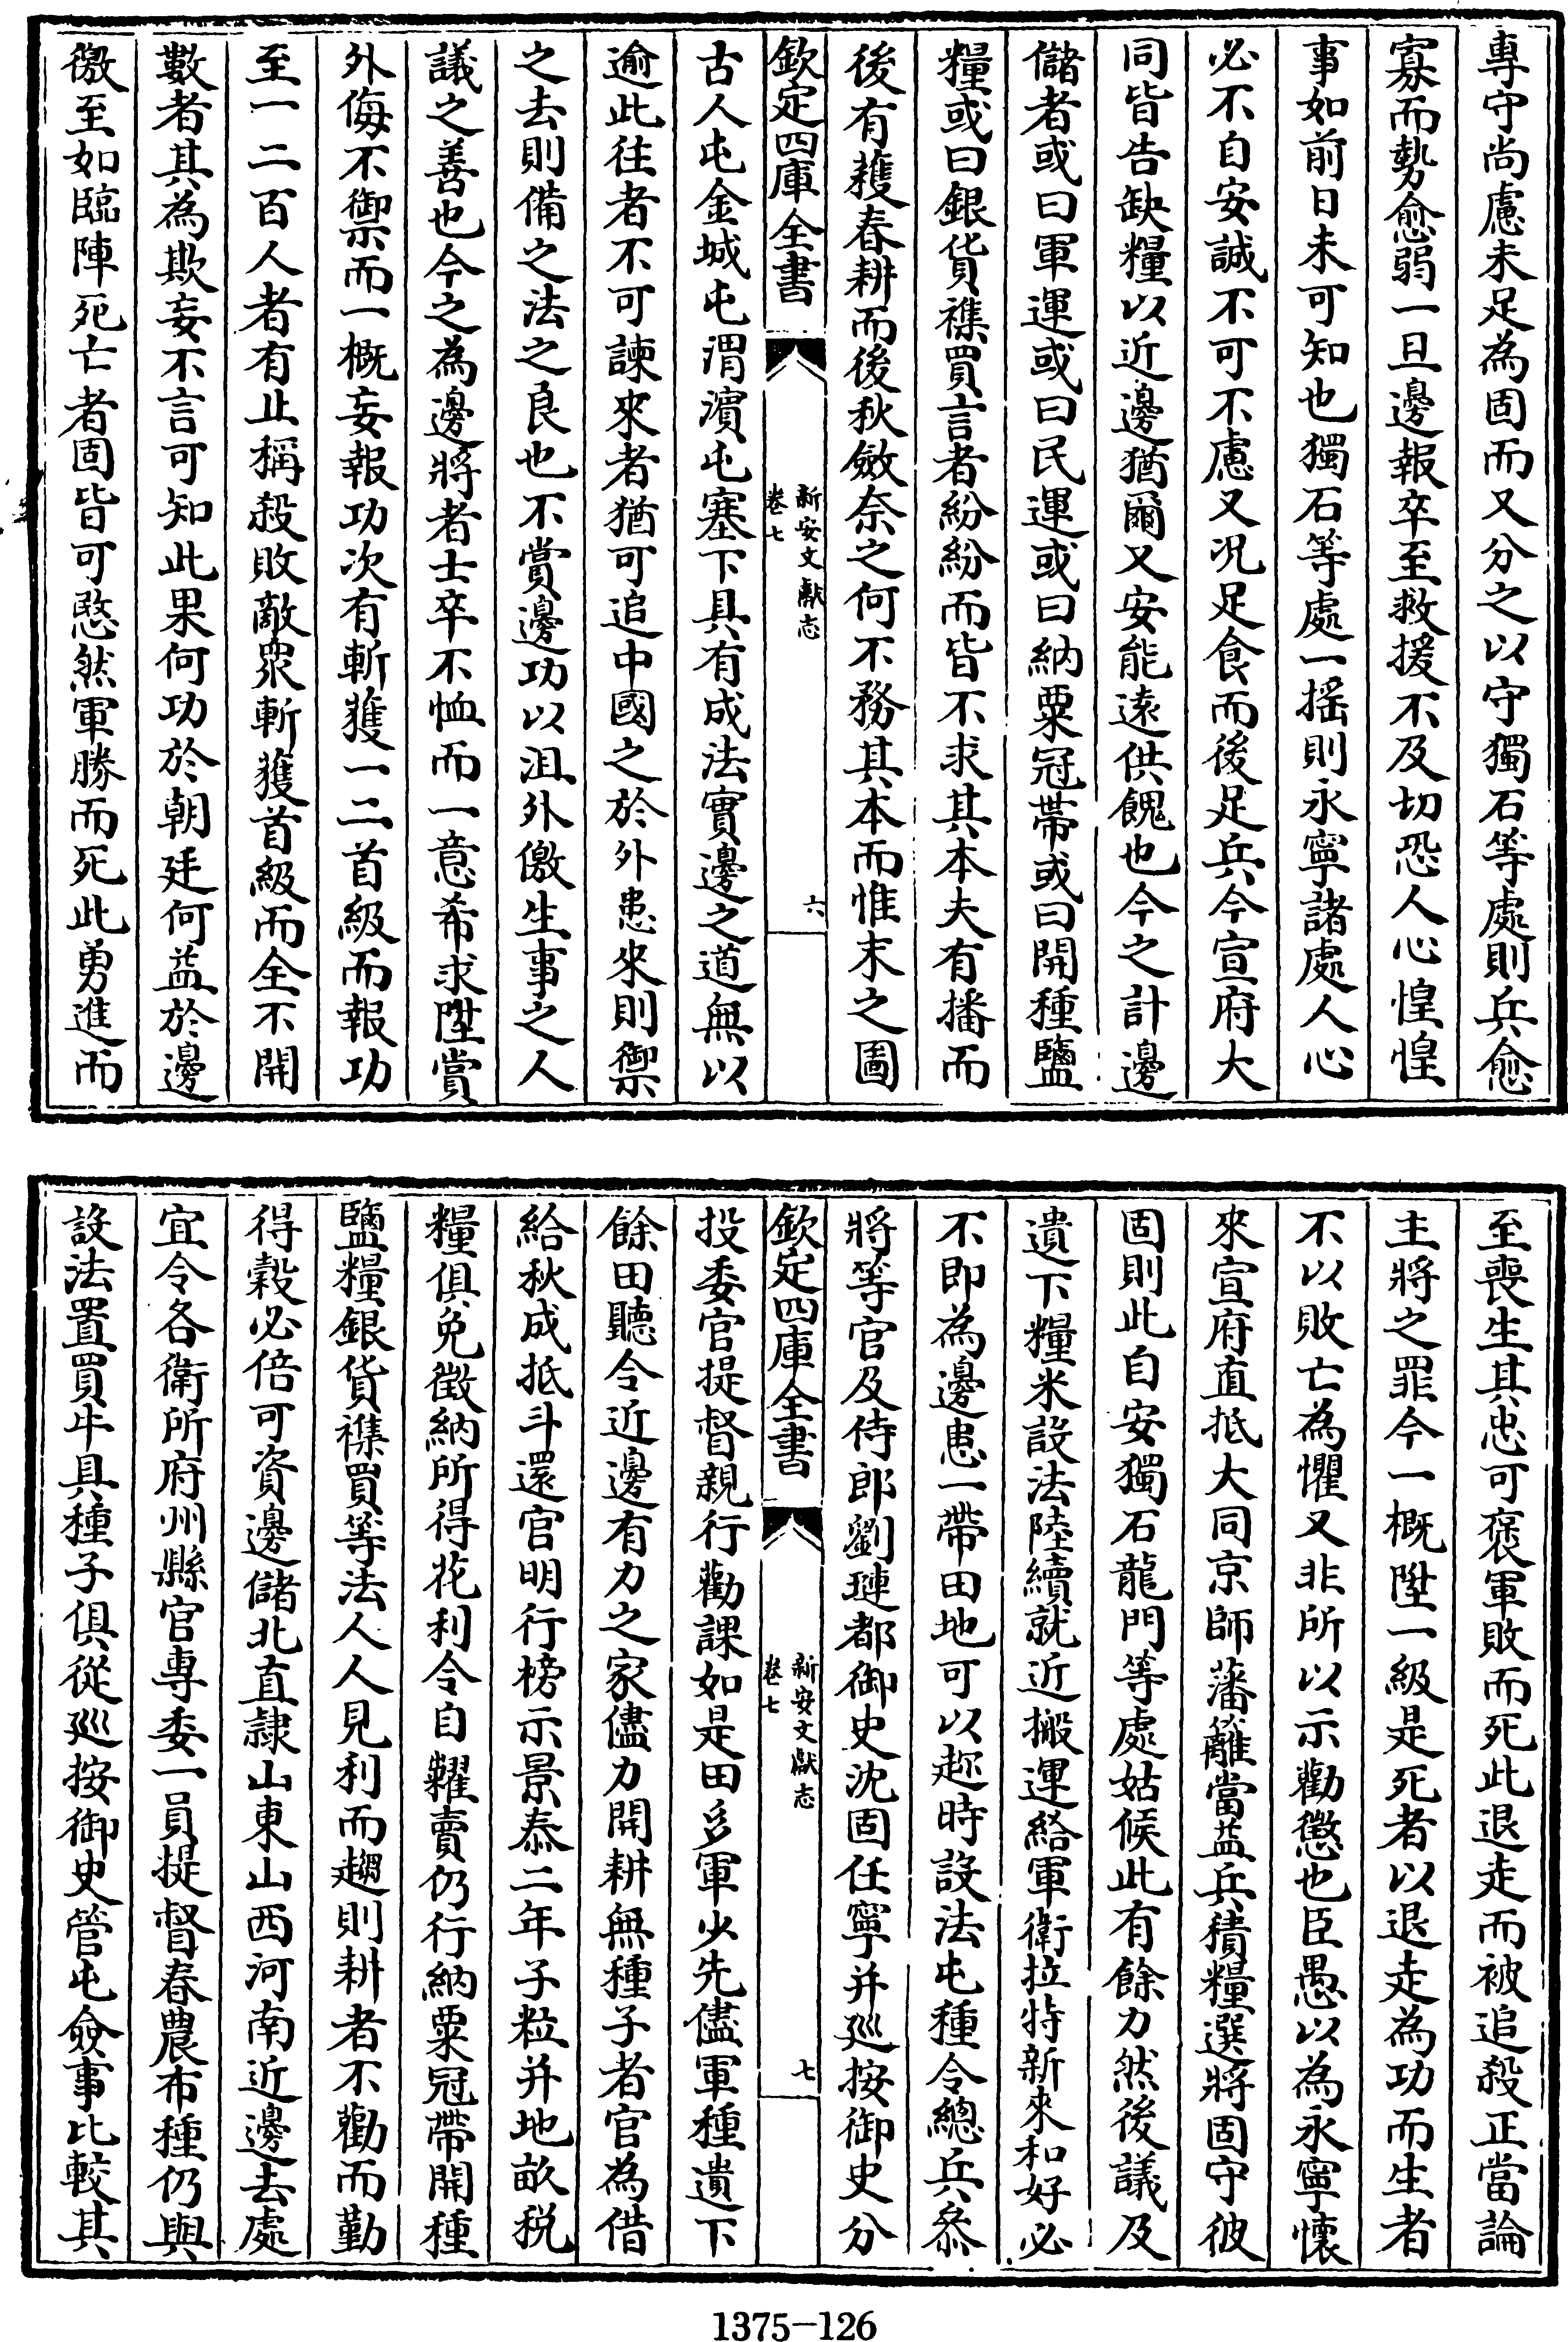 專守尚慮未足為固而又分之以守獨石等處則兵愈
寡而勢愈弱一旦邊報卒至救援不及切恐人心惶惶
事如前日未可知也獨石等處一揺則永寧諸處人心
必不自安誠不可不慮又况足食而後足兵今宣府大
同皆告缺糧以近邊猶爾又安能逺供餽也今之計邊
儲者或曰軍運或曰民運或曰納粟冠帶或曰開種鹽
糧或曰銀貨襍買言者紛紛而皆不求其本夫有播而
後有穫春耕而後秋斂奈之何不務其本而惟末之圖
欽定四庫全書
新安文獻志
卷七
六
古人屯金城屯渭濵屯塞下具有成法實邊之道無以
逾此往者不可諫來者猶可追中國之於外患來則禦
之去則備之法之良也不賞邊功以沮外徼生事之人
議之善也今之為邊將者士卒不恤而一意希求陞賞
外侮不禦而一概妄報功次有斬獲一二首級而報功
至一二百人者有止稱殺敗敵衆斬獲首級而全不開
數者其為欺妄不言可知此果何功於朝廷何益於邊
徼至如臨陣死亡者固皆可愍然軍勝而死此勇進而
至喪生其忠可褒軍敗而死此退走而被追殺正當論
主將之罪今一概陞一級是死者以退走為功而生者
不以敗亡為懼又非所以示勸懲也臣愚以為永寧懐
來宣府直抵大同京師藩籬當益兵積糧選將固守彼
固則此自安獨石龍門等處姑候此有餘力然後議及
遺下糧米設法陸續就近搬運給軍衛拉特新來和好必
不即為邊患一帶田地可以趂時設法屯種令總兵叅
將等官及侍郎劉璉都御史沈固任寧并廵按御史分
欽定四庫全書
新安文獻志
卷七
七
投委官提督親行勸課如是田多軍少先儘軍種遺下
餘田聽令近邊有力之家儘力開耕無種子者官為借
給秋成抵斗還官明行榜示景泰二年子粒并地畝税
糧俱免徴納所得花利令自糶賣仍行納粟冠帶開種
鹽糧銀貨襍買等法人人見利而趨則耕者不勸而勤
得穀必倍可資邊儲北直隷山東山西河南近邊去處
宜令各衛所府州縣官專委一員提督春農布種仍與
設法置買牛具種子俱從廵按御史管屯僉事比較其
1375-126